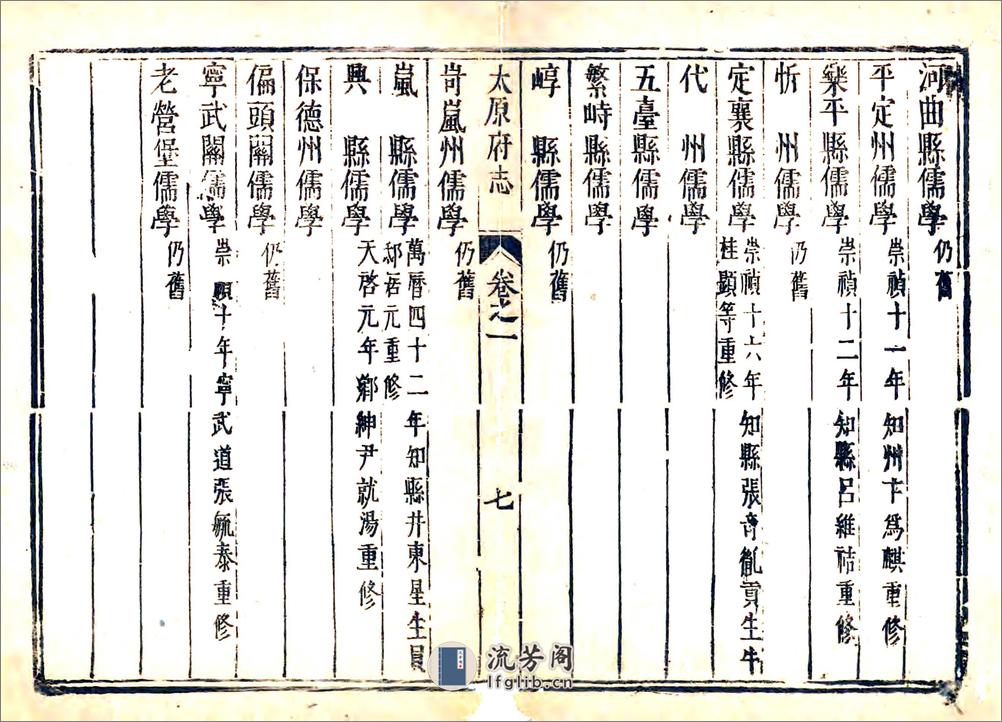 河曲縣儒學仍舊
平定州儒學崇禎十一年知州卞為麒重修
樂平縣儒學崇禎十二年知縣呂維祜重修
忻州儒學仍舊
定襄縣儒學崇禎十六年知縣張 胤貢生牛
桂顯等重修
代州儒學
五臺縣儒學
繁峙縣儒學
崞縣儒學仍舊
太原府志 卷之一 七
岢嵐州儒學仍舊
嵐縣儒學萬曆四十二年知縣井東星生員
邸居元重修
興縣儒學天啓元年鄉紳尹就湯重修
保德州儒學
偏頭關儒學仍舊
寧武關儒學崇禎十年寧武道張毓泰重修
老營堡儒學仍舊
流芳阁
lfglib.cn